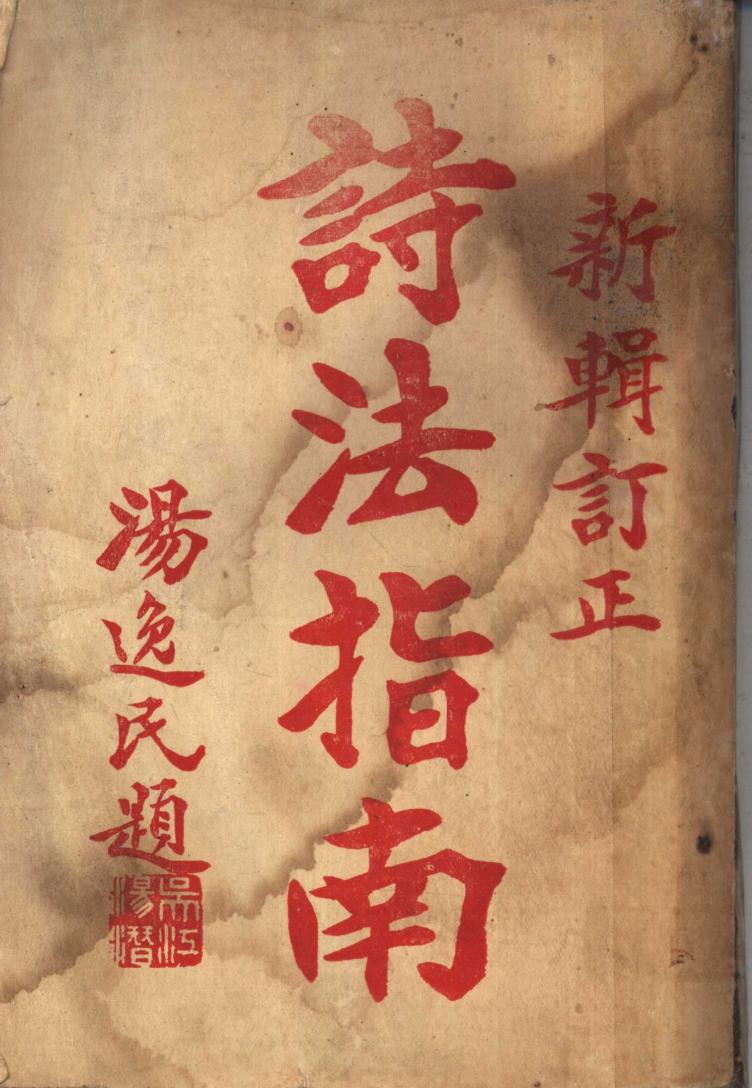 新輯訂正
詩法指南
湯逸民題
吳江
湯潛